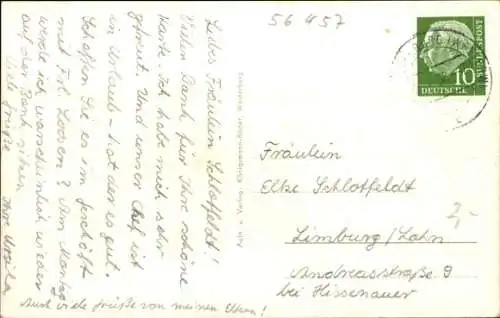 56 457
Liebes Fräulein Schlotfeldt!
Vielen Dank für Ihre schöne
Karte. Ich habe mich sehr
gefreut. Und unser Chef ist
in Urlaub - hat der es gut.
Schaffen Sie es im Geschäft
mit Frl. Loosen? Am Montag
werde ich warscheinlich wieder
auf der Bank sitzen.
Viele Grüße
Ihre Ursula
Auch viele Grüße von meinen Eltern!
DEUTSCHE
BUNDESPOST
10
Fräulein
Elke Schlotfeldt
Limburg/Lahn
Andreasstraße 9
bei Hissenauer
2,-